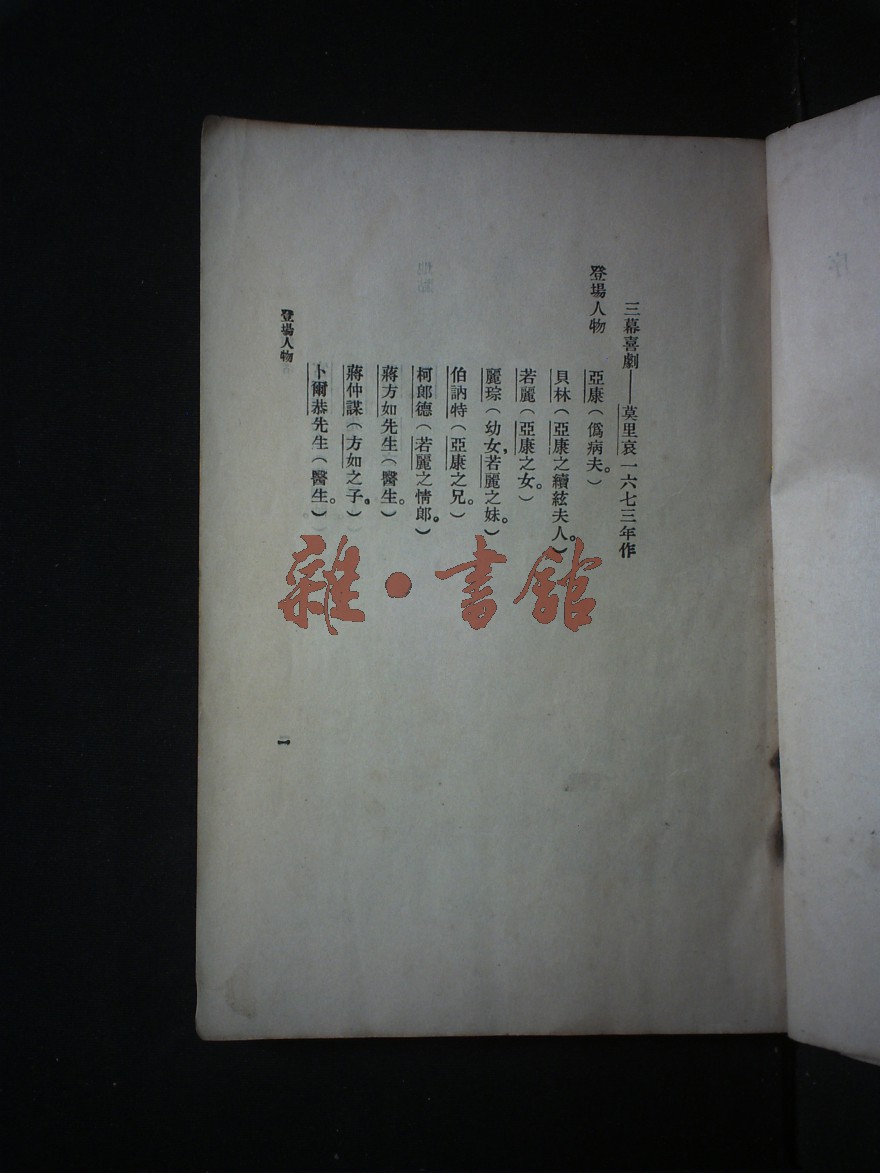 三幕喜劇——莫里哀一六七三年作
登場人物
亞康（僞病夫。）
貝林（亞康之續絃夫人。）
若麗（亞康之女。）
麗琮（幼女，若麗之妹。）
伯訥特（亞康之兄。）
柯郎德（若麗之情郎。）
蔣方如先生（醫生。）
蔣仲謀（方如之子。）
卜爾恭先生（醫生。）
登場人物
一
雜·書館
序